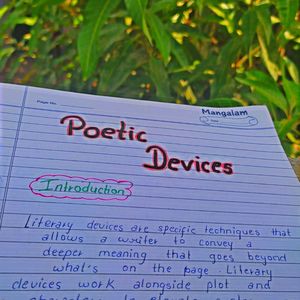 Page No.
Mangalam
Poetic
Devices
Introduction
Literary devices are specific techniques that
allows a writer to convey a
deeper meaning that goes beyond
what's on the page. Literary
devices work alongside plot and